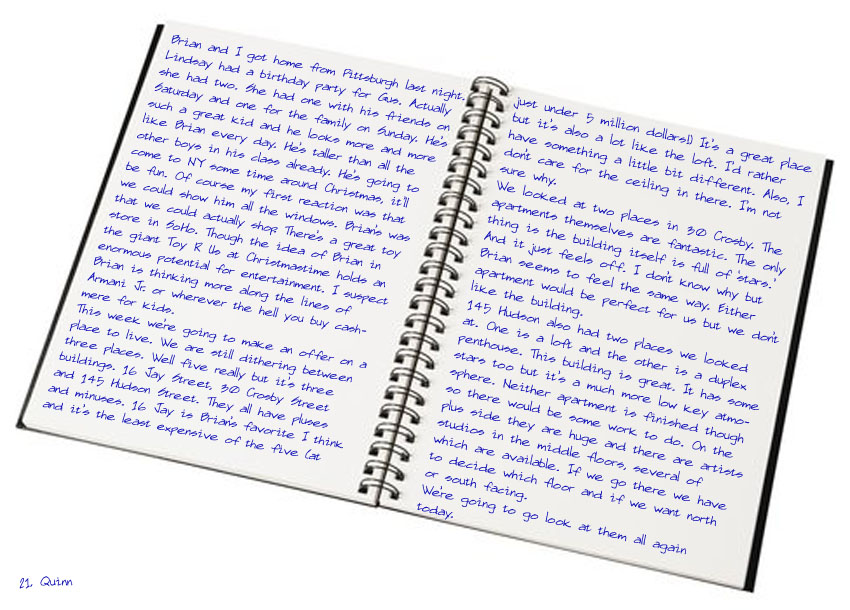 Brian and I got home from Pittsburgh last night.
Lindsay had a birthday party for Gus. Actually
she had two. She had one with his friends on
Saturday and one for the family on Sunday. He's
such a great kid and he looks more and more
like Brian every day. He's taller than all the
other boys in his class already. He's going to
come to NY some time around Christmas, it'll
be fun. Of course my first reaction was that
we could show him all the windows. Brian's was
that we could actually shop. There's a great toy
store in SoHo. Though the idea of Brian in
the giant Toy R Us at Christmastime holds an
enormous potential for entertainment, I suspect
Brian is thinking more along the lines of
Armani Jr. or wherever the hell you buy cash-
mere for kids.
This week we're going to make an offer on a
place to live. We are still dithering between
three places. Well five really but it's three
buildings. 16 Jay Street, 30 Crosby Street
and 145 Hudson Street. They all have pluses
and minuses. 16 Jay is Brian's favorite I think
and it's the least expensive of the five (at
just under 5 million dollars!) It's a great place
but it's also a lot like the loft. I'd rather
have something a little bit different. Also, I
don't care for the ceiling in there. I'm not
sure why.
We looked at two places in 30 Crosby. The
apartments themselves are fantastic. The only
thing is the building itself is full of 'stars.'
And it just feels off. I don't know why but
Brian seems to feel the same way. Either
apartment would be perfect for us but we don't
like the building.
145 Hudson also had two places we looked
at. One is a loft and the other is a duplex
penthouse. This building is great. It has some
stars too but it's a much more low key atmo-
sphere. Neither apartment is finished though
so there would be some work to do. On the
plus side they are huge and there are artists
studios in the middle floors, several of
which are available. If we go there we have
to decide which floor and if we want north
or south facing.
We're going to go look at them all again
today.
21, Quinn